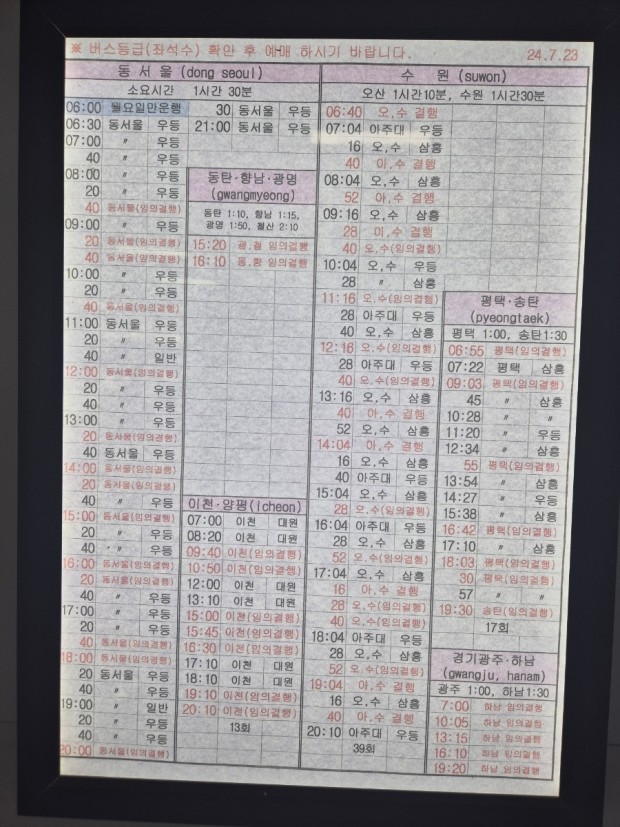 ※ 버스등급(좌석수) 확인 후 예매 하시기 바랍니다. 24.7.23
동 서 울 (dong seoul)
소요시간 1시간 30분
06:00 월요일만운행
06:30 동서울 우등
07:00 〃 우등
40 〃 우등
08:00 〃 우등
20 〃 우등
40 동서울(임의결행)
09:00 〃 우등
20 동서울(임의결행)
40 동서울(임의결행)
10:00 〃 우등
20 〃 우등
40 동서울(임의결행)
11:00 동서울 우등
20 〃 우등
40 〃 일반
12:00 동서울(임의결행)
20 〃 우등
40 〃 우등
13:00 〃 우등
20 동서울(임의결행)
40 동서울 우등
14:00 동서울(임의결행)
20 동서울(임의결행)
40 〃 우등
15:00 동서울(임의결행)
20 〃 우등
40 〃 우등
16:00 동서울(임의결행)
20 동서울(임의결행)
40 〃 우등
17:00 〃 우등
20 〃 우등
40 동서울(임의결행)
18:00 동서울(임의결행)
20 동서울 우등
40 〃 우등
19:00 〃 일반
20 〃 우등
40 〃 우등
20:00 동서울(임의결행)
30 동서울 우등
21:00 동서울 우등
동탄·향남·광명
(gwangmyeong)
동탄 1:10, 향남 1:15,
광명 1:50, 철산 2:10
15:20 광,철 임의결행
16:10 동,향 임의결행
이천·양평(icheon)
07:00 이천 대원
08:20 이천 대원
09:40 이천(임의결행)
10:50 이천(임의결행)
12:00 이천 대원
13:10 이천 대원
15:00 이천(임의결행)
15:45 이천(임의결행)
16:30 이천(임의결행)
17:10 이천 대원
18:10 이천 대원
19:10 이천(임의결행)
20:10 이천(임의결행)
13회
수 원 (suwon)
오산 1시간10분, 수원 1시간30분
06:40 오,수 결행
07:04 아주대 우등
16 오,수 삼흥
40 아,수 결행
08:04 오,수 삼흥
52 아,수 결행
09:16 오,수 삼흥
28 아,수 결행
40 오,수(임의결행)
10:04 오,수 우등
28 〃 삼흥
11:16 오,수(임의결행)
28 아주대 우등
40 오,수 삼흥
12:16 오,수(임의결행)
28 아주대 우등
40 오,수(임의결행)
13:16 오,수 삼흥
40 아,수 결행
52 오,수 삼흥
14:04 아,수 결행
16 오,수 삼흥
40 아주대 우등
15:04 오,수 삼흥
28 오,수(임의결행)
16:04 아주대 우등
28 오,수 삼흥
52 오,수(임의결행)
17:04 오,수 삼흥
16 아,수 결행
28 오,수(임의결행)
40 오,수(임의결행)
18:04 아주대 우등
28 오,수 삼흥
52 오,수(임의결행)
19:04 아,수 결행
16 오,수 삼흥
40 아,수 결행
20:10 아주대 우등
39회
평택·송탄
(pyeongtaek)
평택 1:00, 송탄1:30
06:55 평택(임의결행)
07:22 평택 삼흥
09:03 평택(임의결행)
45 〃 삼흥
10:28 〃 〃
11:20 〃 우등
12:34 〃 삼흥
55 평택(임의결행)
13:54 〃 삼흥
14:27 〃 우등
15:38 〃 삼흥
16:42 평택(임의결행)
17:10 〃 삼흥
18:03 평택(임의결행)
30 평택(임의결행)
57 〃 〃
19:30 송탄(임의결행)
17회
경기광주·하남
(gwangju, hanam)
광주 1:00, 하남1:30
7:00 하남 임의결행
10:05 하남 임의결행
13:15 하남 임의결행
16:10 하남 임의결행
19:20 하남 임의결행